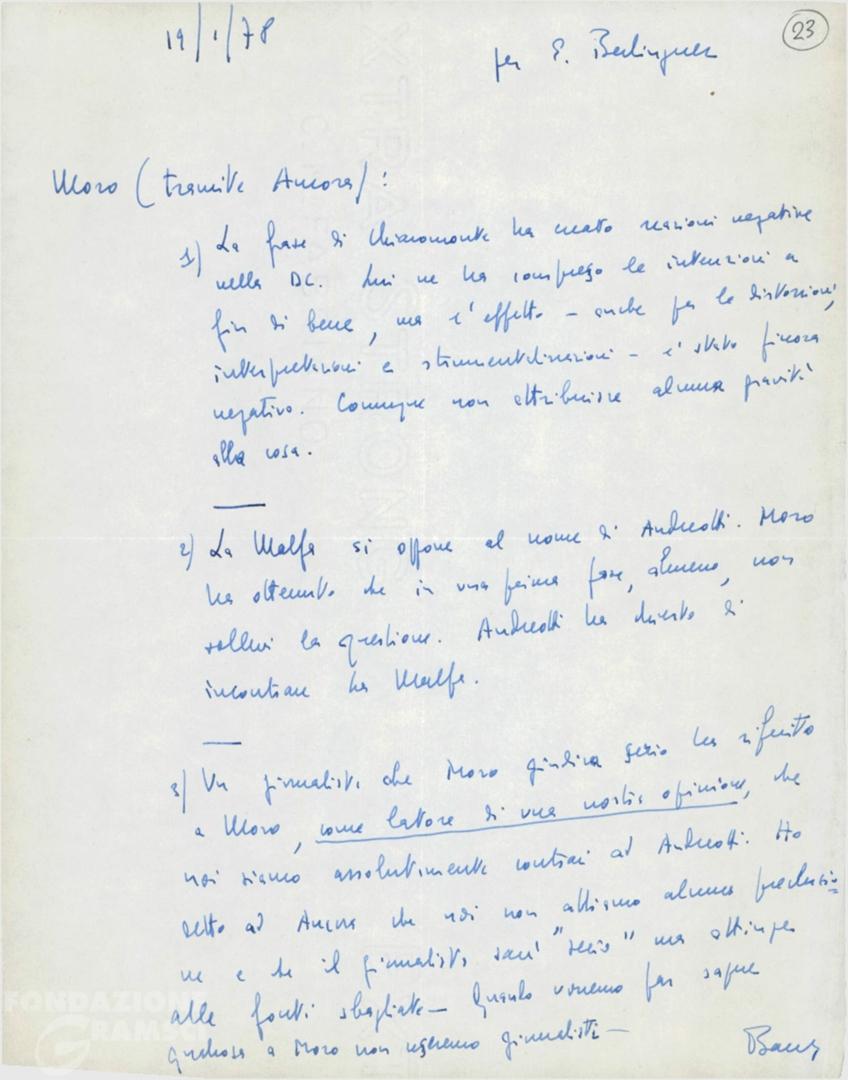 23
19/1/78
per E. Berlinguer
Moro (tramite Ancora):
1) La frase di Chiaromonte ha creato reazioni negative
nella DC. Lui ne ha compreso le intenzioni a
fin di bene, ma l'effetto – anche per le distorsioni,
interpretazioni e strumentalizzazioni – è stato finora
negativo. Comunque non attribuisce alcuna gravità
alla cosa.
2) La Malfa si oppone al nome di Andreotti. Moro
ha ottenuto che in una prima fase, almeno, non
sollevi la questione. Andreotti ha chiesto di
incontrare La Malfa.
3) Un giornalista che Moro giudica serio ha riferito
a Moro, come latore di una nostra opinione, che
noi siamo assolutamente contrari ad Andreotti. Ho
detto ad Ancora che noi non abbiamo alcuna preclusio=
ne e che il giornalista sarà "serio" ma attinge
alle fonti sbagliate – Quando vorremo far sapere
qualcosa a Moro non useremo giornalisti –
Barca
FONDAZIONE
GRAMSCI